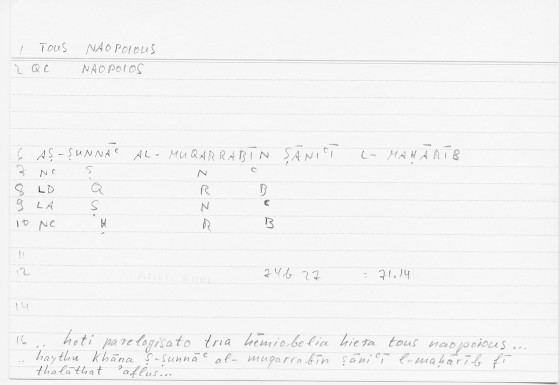 1 TOUS NAOPOIOUS
2 QC NAOPOIOS
6 AṢ-ṢUNNĀᶜ AL-MUQARRABĪN ṢĀNIᶜĪ L-MAḤĀRĪB
7 NC Ṣ N ᶜ
8 LD Q R B
9 LA Ṣ N ᶜ
10 NC Ḥ R B
11
12 246 22 : 71.14
14
16 .. hoti parelogisato tria hēmiobelia hiera tous naopoious...
.. haythu khāna ṣ-ṣunnāᶜ al-muqarrabīn ṣāniᶜī l-maḥārīb fī
thalāthat ʾaflus...